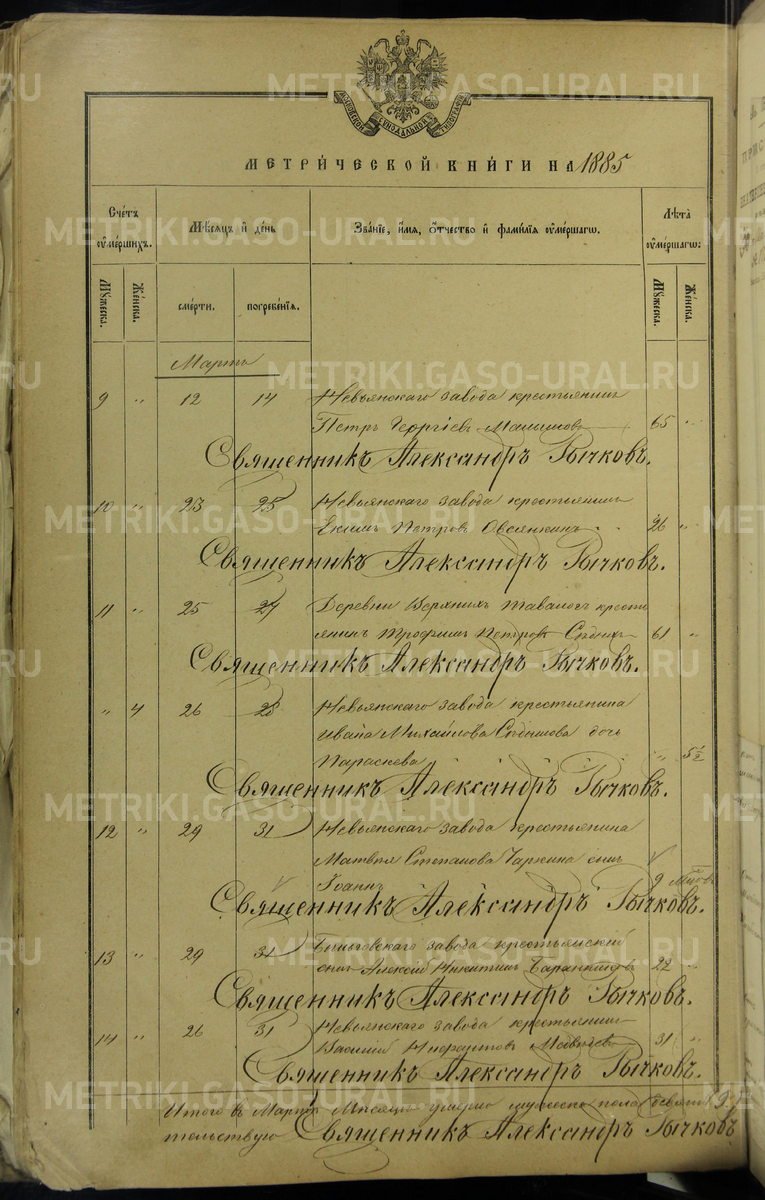 МОСКОВСКОЙ СѴНОДАЛЬНОЙ ТИПОГРАФІИ
МЕТРИ́ЧЕСКОЙ КНИ́ГИ НА 1885
Сче́тъ ᲂу҆ме́ршихъ.
Мѣ́сяцъ и҆ де́нь
Зва́нїе, и҆́мя, ѻ҆́тчество и҆ фами́лїя ᲂу҆ме́ршагѡ.
Лѣ́та ᲂу҆ме́ршагѡ:
Мꙋ́жеска.
Же́нска.
сме́рти.
погребе́нїѧ.
Мꙋ́жеска.
Же́нска.
Мартъ
9 " 12 14 Невьянскаго завода крестьянинъ
Петръ Георгіевъ 65 "
Священникъ Александръ Бычковъ.
10 " 23 25 Невьянскаго завода крестьянинъ
Екимъ Петровъ Овсянкинъ 26 "
Священникъ Александръ Бычковъ.
11 " 25 27 Деревни Верхнихъ Тавологъ кресть
янинъ Трофимъ Петровъ 61 "
Священникъ Александръ Бычковъ.
" 4 26 28 Невьянскаго завода крестьянина
Ивана Михайлова дочь
Параскева " 5 1/2
Священникъ Александръ Бычковъ.
12 " 29 31 Невьянскаго завода крестьянина
Матвѣя Степанова сынъ
Іоаннъ 9 мѣсяц.
Священникъ Александръ Бычковъ.
13 " 29 31 Быньговскаго завода крестьянскій
сынъ Алексій Никитинъ 22 "
Священникъ Александръ Бычковъ.
14 " 26 31 Невьянскаго завода крестьянинъ
Василій 31 "
Священникъ Александръ Бычковъ.
Итого в Мартѣ Мѣсяцѣ умерло мужеска пола
Священникъ Александръ Бычковъ
METRIKI.GASO-URAL.RU